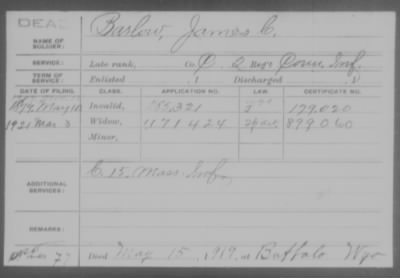 DEAD
NAME OF SOLDIER: Barlow, James C.
SERVICE: Late rank, Co. D, 2 Reg't Conn. Inf.
TERM OF SERVICE: Enlisted , 1 Discharged , 1
DATE OF FILING. CLASS. APPLICATION NO. LAW. CERTIFICATE NO.
May 10 Invalid, 321 179020
1921 Mar 3 Widow, 1171424 899060
Minor,
ADDITIONAL SERVICES: C. 15. Mass. Inf.
REMARKS:
Died May 15, 1919, at Buffalo Wyo